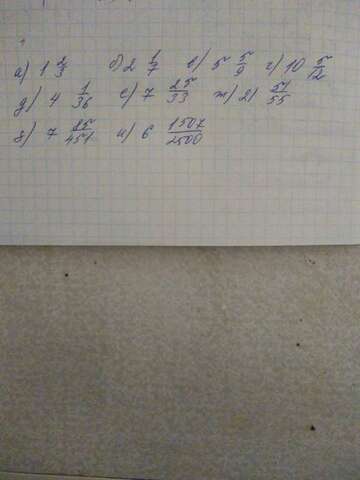 а) 1 2/3 б) 2 1/7 в) 5 5/9 г) 10 5/12
д) 4 1/36 е) 7 25/33 ж) 21 51/55
з) 7 85/451 и) 6 1507/2500